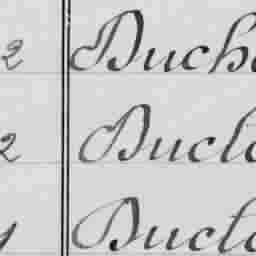 2 Ducha
2 Ducla
Ducla